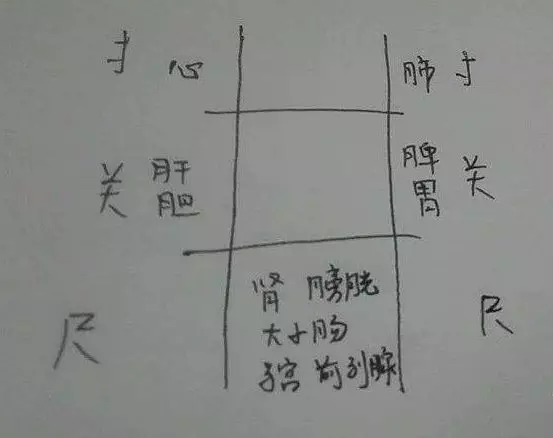 寸 心 肺 寸
关 肝 脾 关
胆 胃
肾 膀胱
尺 大小肠 尺
子宫 前列腺